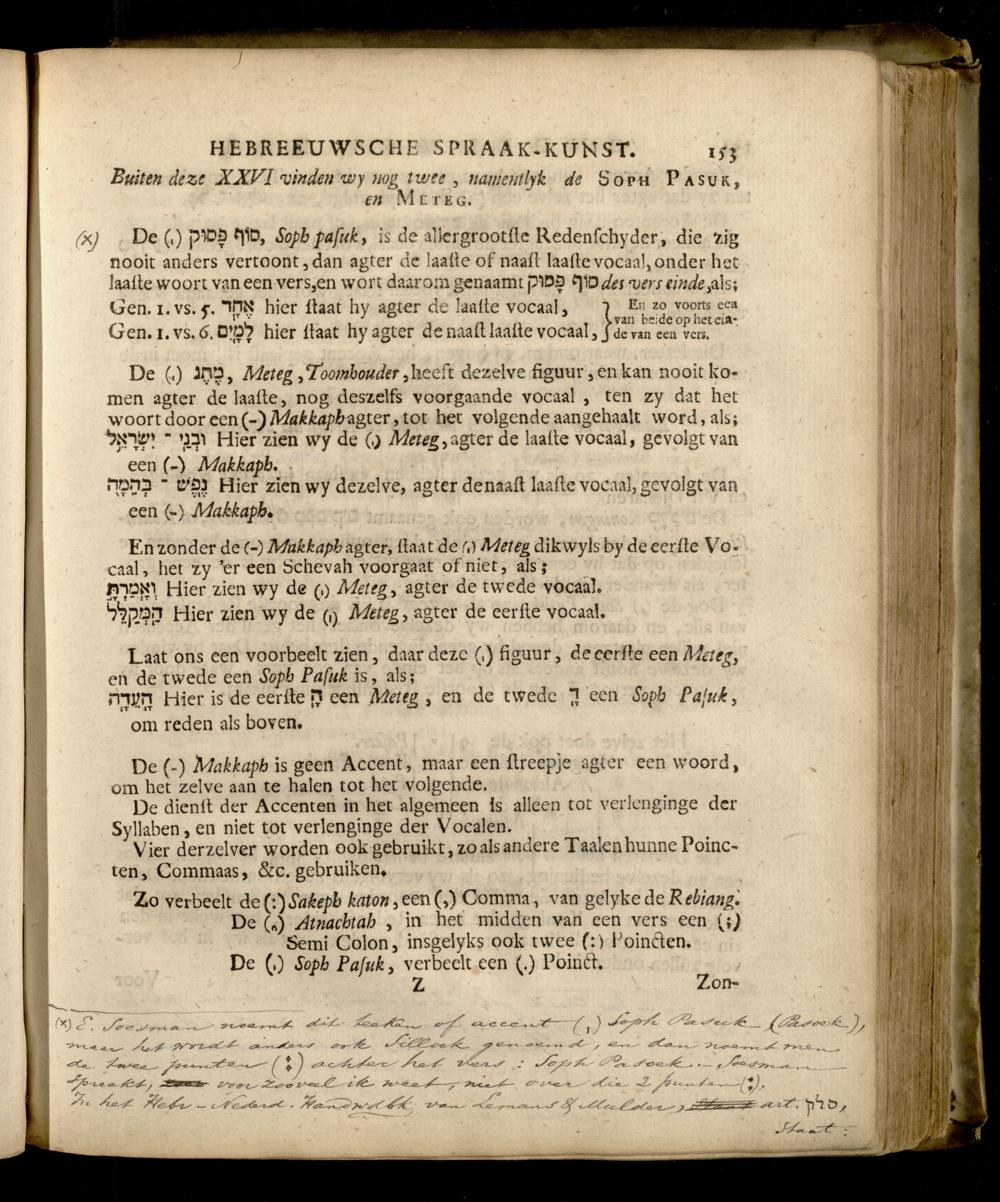 HEBREEUWSCHE SPRAAK-KUNST. 153
Buiten deze XXVI vinden wy nog twee, namentlyk de SOPH PASUK,
en METEG.
(x) De (ˌ) סוֹף פָּסוּק, Soph paſuk, is de allergrootſte Redenſchyder, die zig
nooit anders vertoont, dan agter de laaſte of naaſt laaſte vocaal, onder het
laaſte woort van een vers, en wort daarom genaamt סוֹף פָּסוּק des vers einde, als;
Gen. 1. vs. 5. אֶחָֽד hier ſtaat hy agter de laaſte vocaal,
Gen. 1. vs. 6. לָמָֽיִם hier ſtaat hy agter de naaſt laaſte vocaal,
} En zo voorts een
van beide op het ein-
de van een vers.
De (ˌ) מֶתֶג, Meteg, Toomhouder, heeft dezelve figuur, en kan nooit ko-
men agter de laaſte, nog deszelfs voorgaande vocaal, ten zy dat het
woort door een (-) Makkaph agter, tot het volgende aangehaalt word, als;
וּבְנֵֽי־יִשְׂרָאֵל Hier zien wy de (ˌ) Meteg, agter de laaſte vocaal, gevolgt van
een (-) Makkaph.
נֶֽפֶשׁ־בְּהֵמָה Hier zien wy dezelve, agter de naaſt laaſte vocaal, gevolgt van
een (-) Makkaph.
En zonder de (-) Makkaph agter, ſtaat de (ˌ) Meteg dikwyls by de eerſte Vo-
caal, het zy 'er een Schevah voorgaat of niet, als;
וְאָֽמַרְתָּ Hier zien wy de (ˌ) Meteg, agter de twede vocaal.
הַֽמְקַלֵּל Hier zien wy de (ˌ) Meteg, agter de eerſte vocaal.
Laat ons een voorbeelt zien, daar deze (ˌ) figuur, de eerſte een Meteg,
en de twede een Soph Paſuk is, als;
הָֽעֵדָֽה Hier is de eerſte הָֽ een Meteg, en de twede דָֽ een Soph Paſuk,
om reden als boven.
De (-) Makkaph is geen Accent, maar een ſtreepje agter een woord,
om het zelve aan te halen tot het volgende.
De dienſt der Accenten in het algemeen is alleen tot verlenginge der
Syllaben, en niet tot verlenginge der Vocalen.
Vier derzelver worden ook gebruikt, zo als andere Taalen hunne Poinc-
ten, Commaas, &c. gebruiken.
Zo verbeelt de (:) Sakeph katon, een (,) Comma, van gelyke de Rebiang.
De (‸) Atnachtah, in het midden van een vers een (;)
Semi Colon, insgelyks ook twee (:) Poincten.
De (ˌ) Soph Paſuk, verbeelt een (.) Poinct.
Z Zon-
(x) E. Soesman noemt dit teeken of accent (ˌ) Soph Pasuk – (Pasoek),
maar het wordt anders ook Silloek genoemd, en dan noemt men
de twee punten (:) achter het vers: Soph Pasoek. – Soesman
spreekt, voor zooveel ik weet, niet over die 2 punten (:).
In het Hebr – Nederd. Handwdbk van Lemans & Mulder, Staat art. סלק,
Staat: